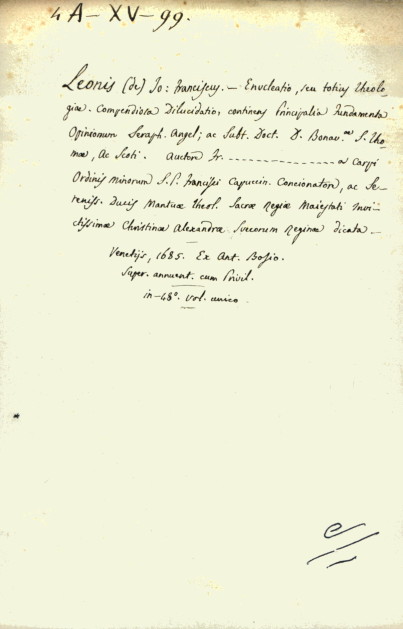 4 A-XV-99.
Leonis (de) Jo: Franciscus. — Enucleatio, seu totius Theolo-
giae Compendiosa Dilucidatio, continens Principalia Fundamenta
Opinionum Seraph. Angel; ac Subt. Doct. D. Bonav.rae S. Tho-
mae, Ac Scoti. Auctore Fr. -------------------- a Carpi
Ordinis Minorum S. P. Francisci Capuccin. Concionatore, ac Se-
reniss. Ducis Mantuae Theol. Sacrae Regiae Maiestati Invi-
ctissimae Christinae Alexandrae Suecorum Reginae dicata —
Venetijs, 1685. Ex Ant. Bosio.
Super. annuent. cum Privil.
in-48°. vol. unico